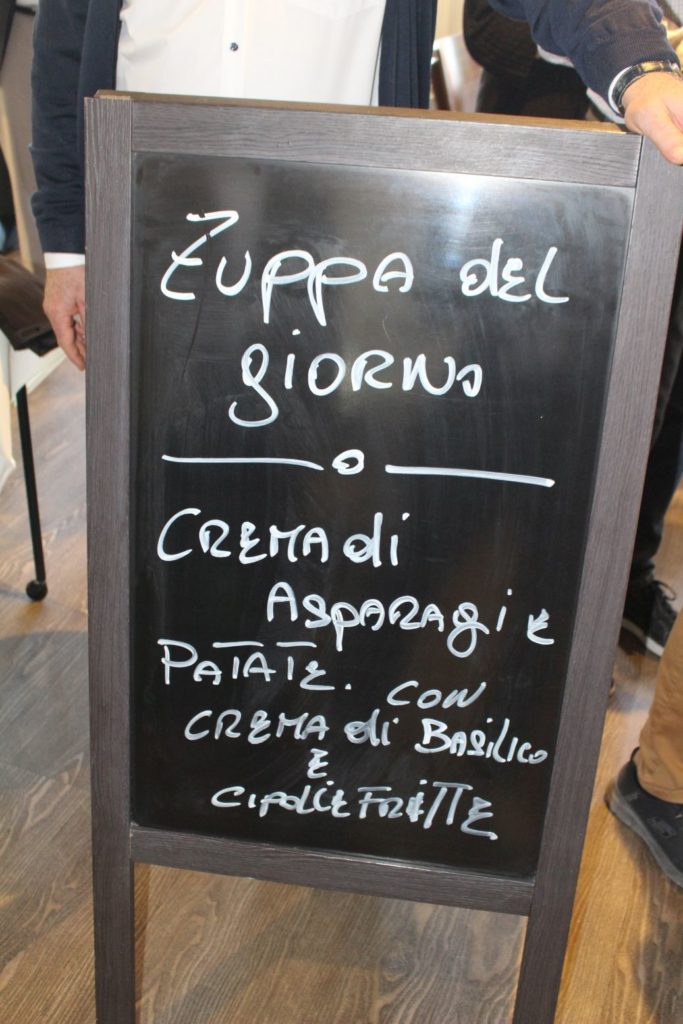 Zuppa del
giorno
Crema di
Asparagi e
Patate. con
crema di Basilico
e
cipolle fritte